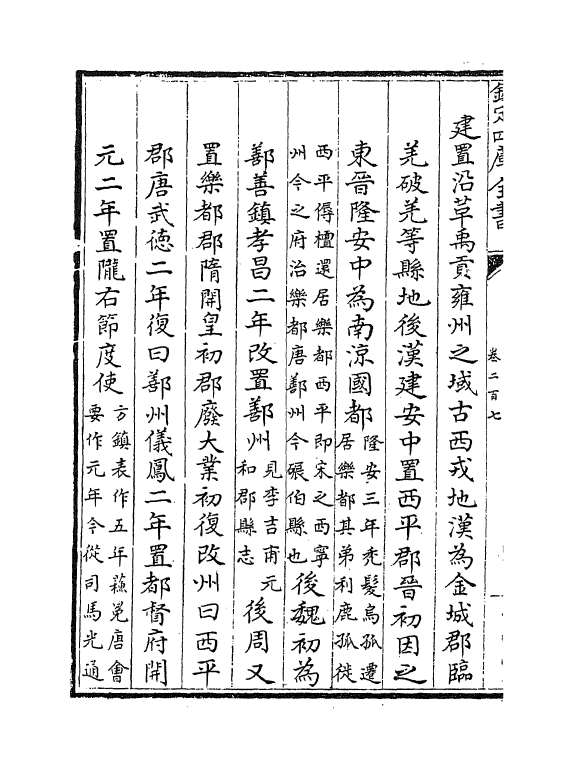 欽定四庫全書
卷二百七
建置沿革禹貢雍州之域古西戎地漢為金城郡臨
羌破羌等縣地後漢建安中置西平郡晉初因之
東晉隆安中為南涼國都
隆安三年秃髮烏孤遷
居樂都其弟利鹿孤徙
西平傉檀還居樂都西平即宋之西寧
州今之府治樂都唐鄯州今碾伯縣也
後魏初為
鄯善鎮孝昌二年改置鄯州
見李吉甫元
和郡縣志
後周又
置樂都郡隋開皇初郡廢大業初復改州曰西平
郡唐武徳二年復曰鄯州儀鳳二年置都督府開
元二年置隴右節度使
方鎮表作五年蘓冕唐會
要作元年今從司馬光通